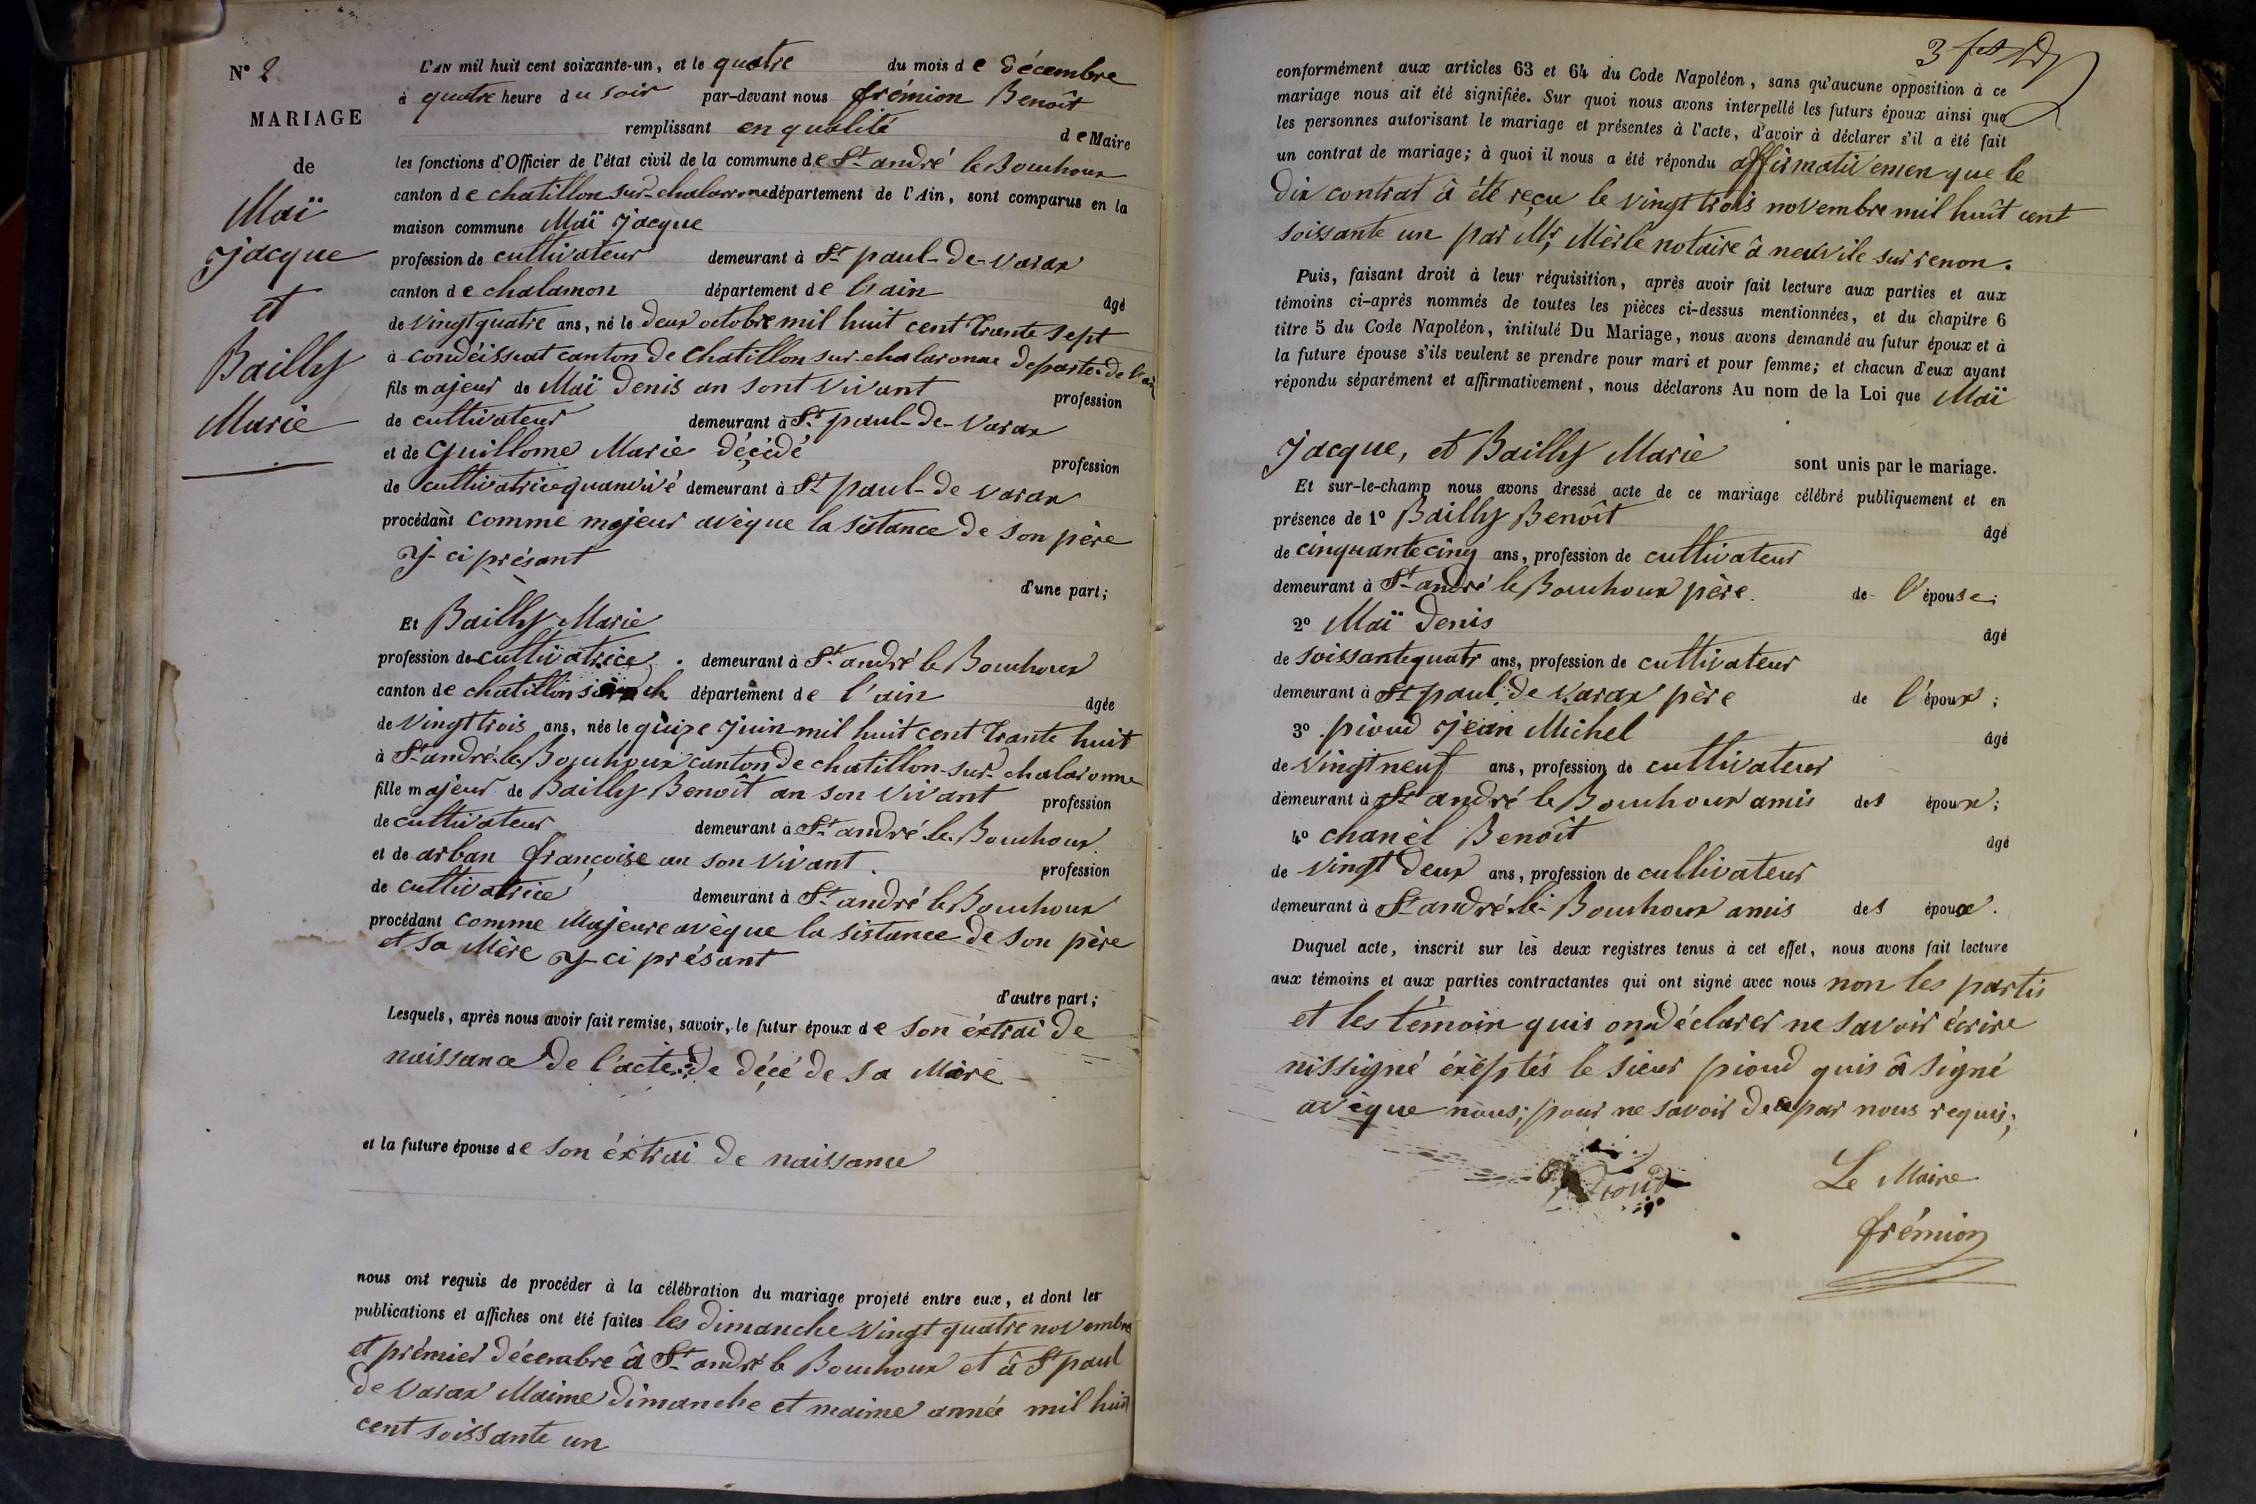 N° 2
MARIAGE
de
Maï
jacque
et
Bailly
Marie
L'AN mil huit cent soixante-un, et le quatre du mois de décembre
à quatre heure du soir par-devant nous frémion Benoît
remplissant en qualité de Maire
les fonctions d'Officier de l'état civil de la commune de St andré le Bouchoux
canton de chatillon sur-chalaronne département de l'Ain, sont comparus en la
maison commune Maï jacque
profession de cultivateur demeurant à St paul-de-varax
canton de chalamon département de l'ain âgé
de vingt quatre ans, né le deux octobre mil huit cent trante sept
à condéissiat canton de chatillon sur chalaronne departe. de l'ain
fils majeur de Maï Denis an sont vivant profession
de cultivateur demeurant à St paul-de-Varax
et de Guillome Marie décédé profession
de cultivatrice quanvivé demeurant à St paul-de varax
procédant comme majeur avèque la sistance de son père
y-ci présant
d'une part;
Et Bailly Marie
profession de cultivatrice. demeurant à St andré le Bouchoux
canton de chatillon sur ch département de l'ain âgée
de vingt trois ans, née le quize juin mil huit cent trante huit
à St andré-le-Bouchoux canton de chatillon-sur-chalaronne
fille majeur de Bailly Benoît an son vivant profession
de cultivateur demeurant à St andré le Bouchoux
et de arban françoise an son vivant. profession
de cultivatrice demeurant à St andré le Bouchoux
procédant comme Majeure avèque la sistance de son père
et sa Mère y-ci présant
d'autre part;
Lesquels, après nous avoir fait remise, savoir, le futur époux de son éxtrai de
naissance de l'acte de décé de sa Mère
et la future épouse de son éxtrai de naissance
nous ont requis de procéder à la célébration du mariage projeté entre eux, et dont les
publications et affiches ont été faites les dimanche vingt quatre novembre
et prémier décembre â St andré le Bouchoux et â St paul
de varax Maime dimanche et maime année mil huit
cent soissante un
3 f
conformément aux articles 63 et 64 du Code Napoléon, sans qu'aucune opposition à ce
mariage nous ait été signifiée. Sur quoi nous avons interpellé les futurs époux ainsi que
les personnes autorisant le mariage et présentes à l'acte, d'avoir à déclarer s'il a été fait
un contrat de mariage; à quoi il nous a été répondu affirmativemen que le
dix contrat â été reçu le vingt trois novembre mil huît cent
soissante un par Mr, Mèrle notaire â neuvile sur renon.
Puis, faisant droit à leur réquisition, après avoir fait lecture aux parties et aux
témoins ci-après nommés de toutes les pièces ci-dessus mentionnées, et du chapitre 6
titre 5 du Code Napoléon, intitulé Du Mariage, nous avons demandé au futur époux et à
la future épouse s'ils veulent se prendre pour mari et pour femme; et chacun d'eux ayant
répondu séparément et affirmativement, nous déclarons Au nom de la Loi que Maï
jacque, et Bailly Marie sont unis par le mariage.
Et sur-le-champ nous avons dressé acte de ce mariage célébré publiquement et en
présence de 1° Bailly Benoît âgé
de cinquante cinq ans, profession de cultivateur
demeurant à St andré le Bouchoux père. de l'épouse;
2° Maï Denis âgé
de soissantequatr ans, profession de cultivateur
demeurant à St paul de varax père de l'époux;
3° pioud jean Michel âgé
de vingt neuf ans, profession de cultivateur
demeurant à St andré le Bouchoux amis des époux;
4° chanèl Benoît âgé
de vingt deux ans, profession de cultivateur
demeurant à St andré le Bouchoux amis des époux.
Duquel acte, inscrit sur les deux registres tenus à cet effet, nous avons fait lecture
aux témoins et aux parties contractantes qui ont signé avec nous non les partis
et les témoin quis on déclarer ne savoir écrire
nissigné éxèptés le sieur pioud quis â signé
avèque nous; pour ne savoir de ce par nous requis;
Pioud
Le Maire
frémion